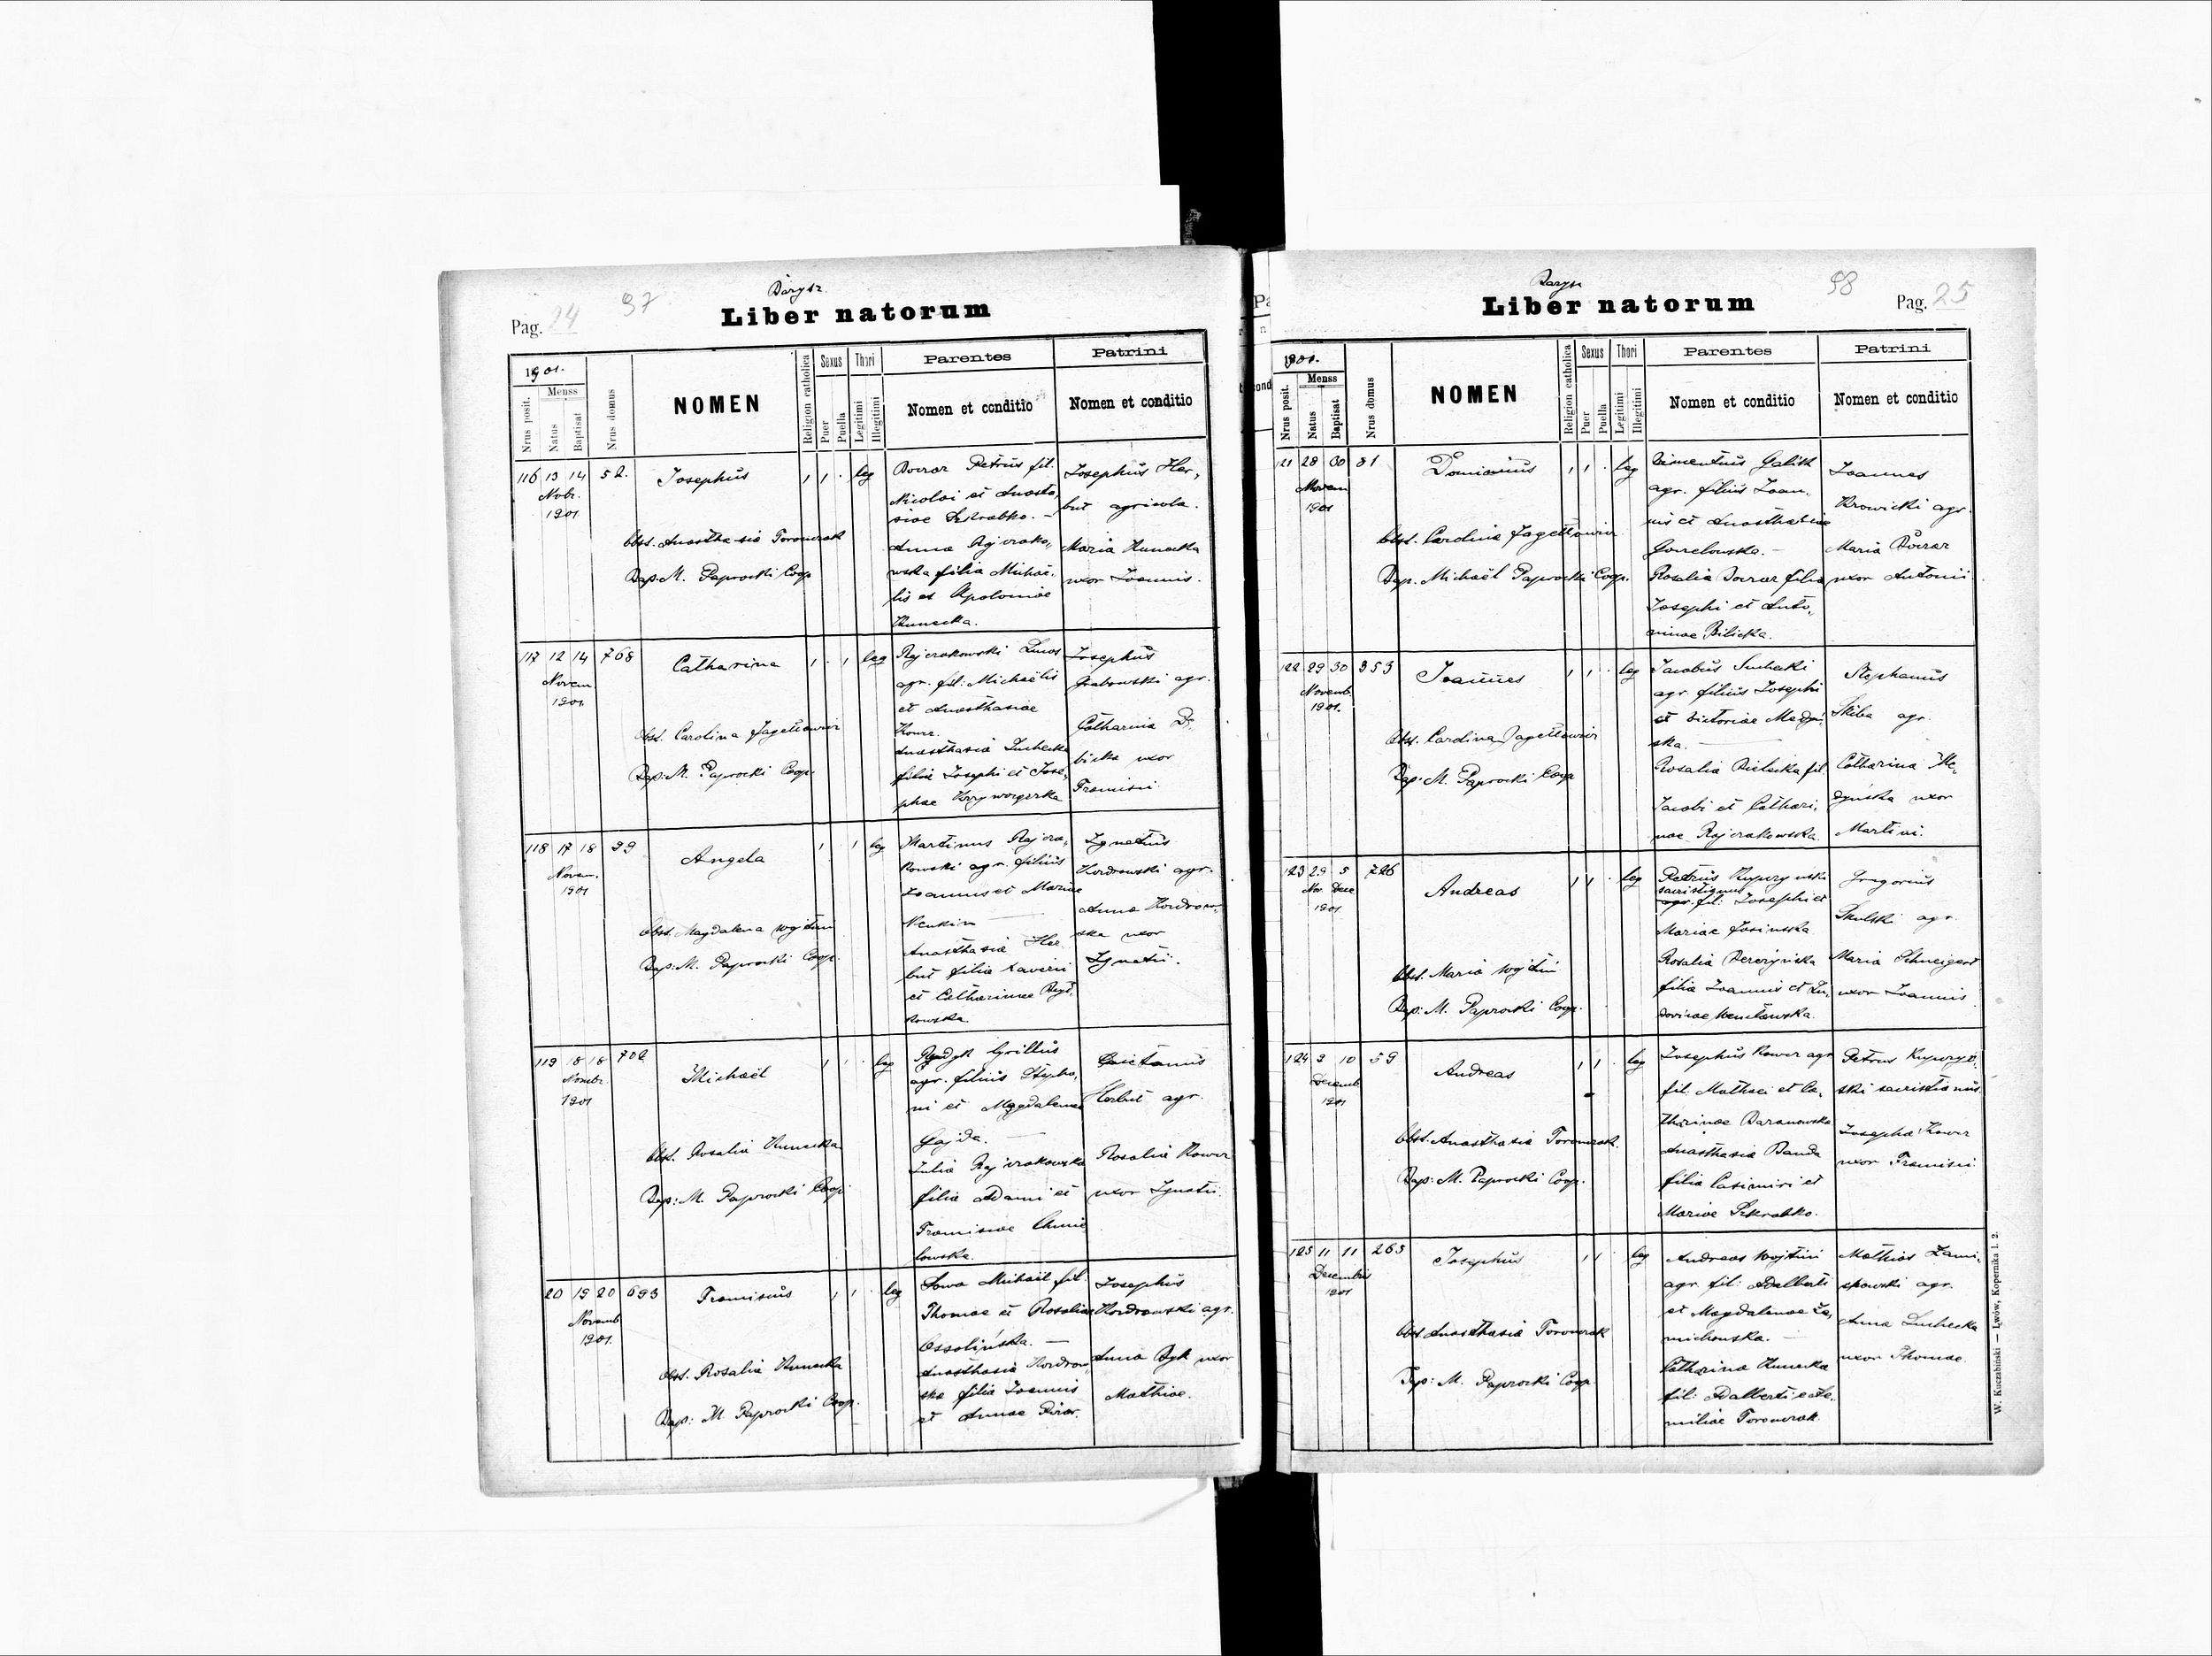 Barysz
Liber natorum
Pag. 24
97
1901.
Menss
Nrus posit.
Natus
Baptisat
Nrus domus
NOMEN
Religion catholica
Sexus
Puer
Puella
Thori
Legitimi
Illegitimi
Parentes
Nomen et conditio
Patrini
Nomen et conditio
116 13 14 52.
Nobr.
1901
Josephus
1 1 . leg
Obst. Anastha sia Toronczak
Bap: M. Paprocki Coop
Petrus fil.
Nicolai et Anasta,
siae Szkrabko. —
Anna Rajczako,
wska filia Michaë,
lis et Apoloniae
Kunecka.
Josephus Her,
but agricola.
Maria Kunecka
uxor Joannis.
117 12 14 768
Novem
1901.
Catharina
1 . 1 leg
Obst. Carolina Jagellowicz
Bap: M. Paprocki Coop.
Rajczakowski Lucas
agr. fil: Michaëlis
et Anasthasiae
Anasthasia Suchecka
filia Josephi et Jose,
phae
Josephus
Grabowski agr.
Catharina
bicka uxor
Francisci
118 17 18 39
Novem.
1901
Angela
1 1 leg
Obst. Magdalena Wojtun
Bap: M. Paprocki Coop.
Martinus Rajcza,
kowski agr. filius
Joannis et Mariae
Anasthasia Her
but filia Xaverii
et Catharinae
kowska
Ignatius
Kordrowski agr.
Anna Kordrow,
ska uxor
Ignatii.
119 18 18 702
Novebr.
1901
Michaël
1 1 . leg
Obst. Rosalia Kunecka
Bap: M. Paprocki Coop
Cyrillus
agr. filius Stepha,
ni et Magdalenae
Gajda.
Julia Rajczakowska
filia Adami et
Franciscae Chmie
lowska.
Caietanus
Herbut agr.
Rosalia Kower
uxor Ignatii.
20 19 20 693
Novemb
1901.
Franciscus
1 1 . leg
Obst. Rosalia Kunecka
Bap: M. Paprocki Coop.
Sowa Michaël fil.
Thomae et Rosaliae
Ossolińska. —
Anasthasia Kordrow,
ska filia Joannis
et Annae
Josephus
Kordrowski agr.
Anna Byk uxor
Mathiae.
Barysz
Liber natorum
98
Pag. 25
1901.
Menss
Nrus posit.
Natus
Baptisat
Nrus domus
NOMEN
Religion catholica
Sexus
Puer
Puella
Thori
Legitimi
Illegitimi
Parentes
Nomen et conditio
Patrini
Nomen et conditio
121 28 30 81
Novem
1901
1 1 . leg
Obst. Carolina Jagellowicz
Bap. Michaël Paprocki Coop.
agr. filius Joan,
nis et Anasthasiae
Gorrelowska. —
Rosalia filia
Josephi et Anto,
ninae Bilicka.
Joannes
Krowicki agr.
Maria
uxor Antonii
122 29 30 353
Novemb.
1901.
Joannes
1 1 . leg
Obst. Carolina Jagellowicz
Bap: M. Paprocki Coop
Jacobus Suchecki
agr. filius Josephi
et Victoriae Medyń,
ska. —
Rosalia Bielecka fil.
Jacobi et Cathari,
nae Rajczakowska.
Stephanus
Skiba agr.
Catharina Me,
dyńska uxor
Martini.
123 29 5 726
Nov. Dece
1901
Andreas
1 1 . leg
Obst. Maria Wojtun
Bap: M. Paprocki Coop.
Petrus
sacristianus
agr. fil: Josephi et
Mariae Josinska
Rosalia
filia Joannis et Lu,
dovicae
Gregorius
Skulski agr.
Maria Schneigert
uxor Joannis
124 9 10 59
Decemb
1901
Andreas
1 1 . leg
Obst. Anasthasia Toronczak.
Bap: M. Paprocki Coop.
Josephus Kower agr
fil. Mathaei et Ca,
tharinae Baranowska
Anasthasia Banda
filia Casimiri et
Mariae Szkrabko.
Petrus
ski sacristianus.
Josepha Kower
uxor Francisci.
125 11 11 263
Decembris
1901
Josephus
1 1 leg
Obst Anasthasia Toronczak
Bap: M. Paprocki Coop
Andreas Wojtun
agr. fil: Adalberti
et Magdalenae Za,
michowska. —
Catharina Kunecka
fil: Adalberti et Ae,
miliae Toronczak.
Mathias Zami,
chowski agr.
Anna Suchecka
uxor Thomae.
W. Kuczabiński — Lwów, Kopernika l. 2.